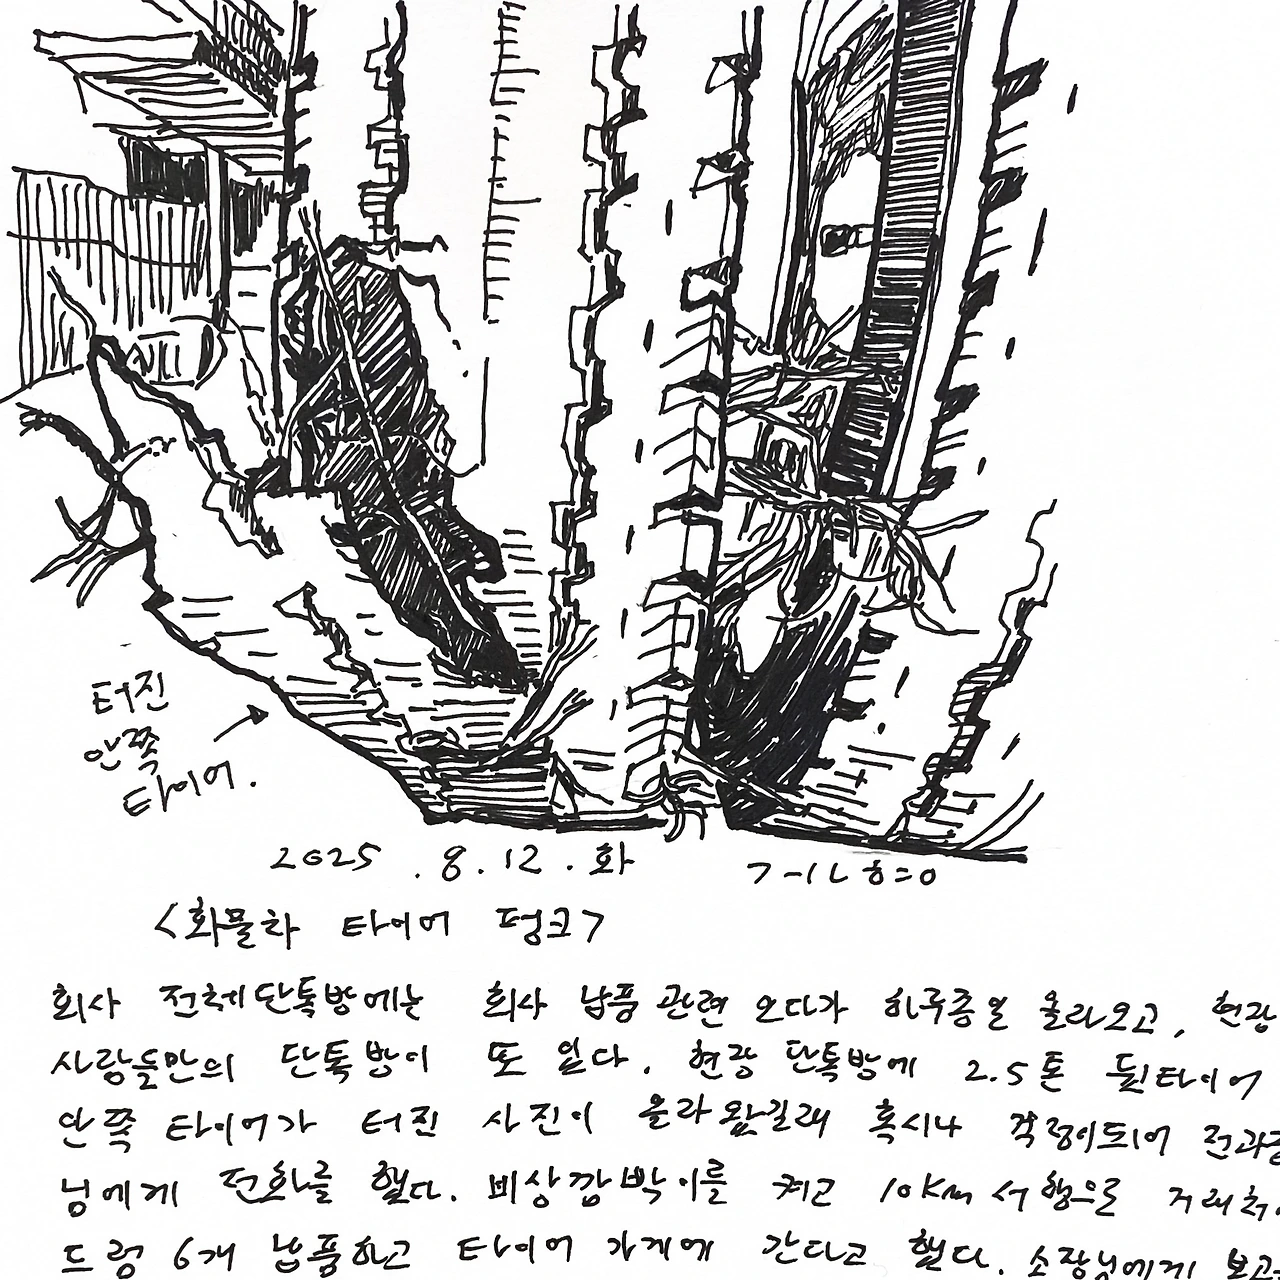 터진
안쪽
타이어.
2025.8.12.화
<화물차 타이어 펑크>
회사 전체단톡방에는 회사 납품관련 오다가 하루종일 올라오고, 현장
사람들만의 단톡방이 또 있다. 현장 단톡방에 2.5톤 뒷타이어
안쪽 타이어가 터진 사진이 올라왔길래 혹시나 걱정이되어 전과장
님에게 전화를 했다. 비상깜박이를 켜고 10Km 서행으로 거래처
드럼 6개 납품하고 타이어 가게에 간다고 했다. 소장님에게 보고